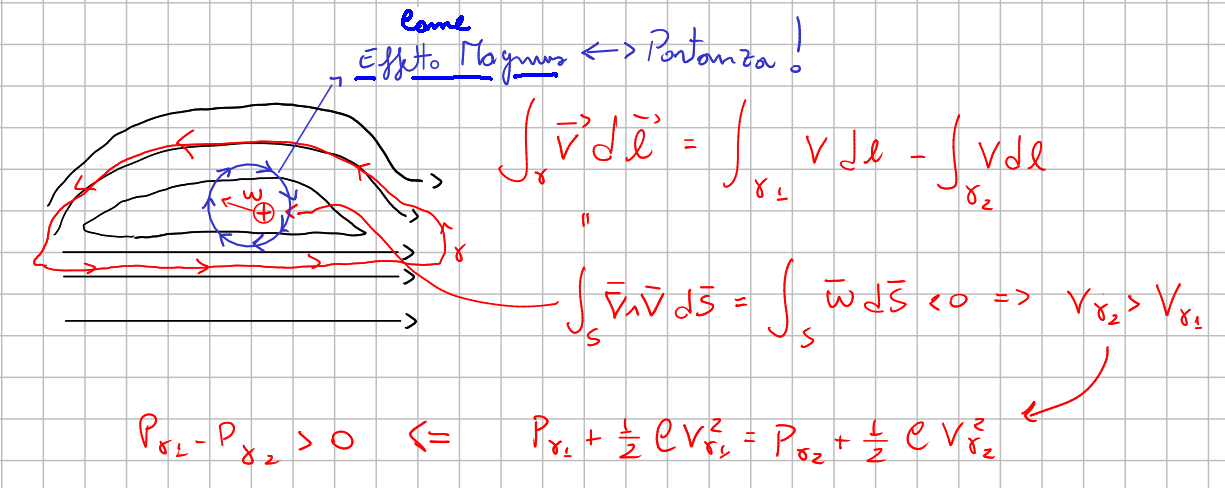 Come
Effetto Magnus <-> Portanza!
∫_γ v⃗ dl⃗ = ∫_γ1 v dl - ∫_γ2 v dl
"
ω
γ
∫_S ∇̅∧v̅ ds̅ = ∫_S w̅ ds̅ <0 => V_γ2 > V_γ1
P_γ1 - P_γ2 > 0 <= P_γ1 + 1/2 ρ V²_γ1 = P_γ2 + 1/2 ρ V²_γ2